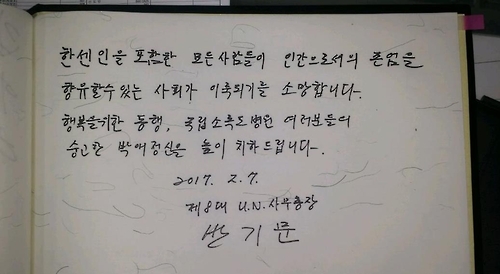 한센인을 포함한 모든사람들이 인간으로서의 존엄을
향유할수있는 사회가 이룩되기를 소망합니다.
행복을위한 동행, 국립소록도병원 여러분들의
숭고한 박애정신을 높이 치하드립니다.
2017. 2. 7.
제8대 U.N. 사무총장
반기문